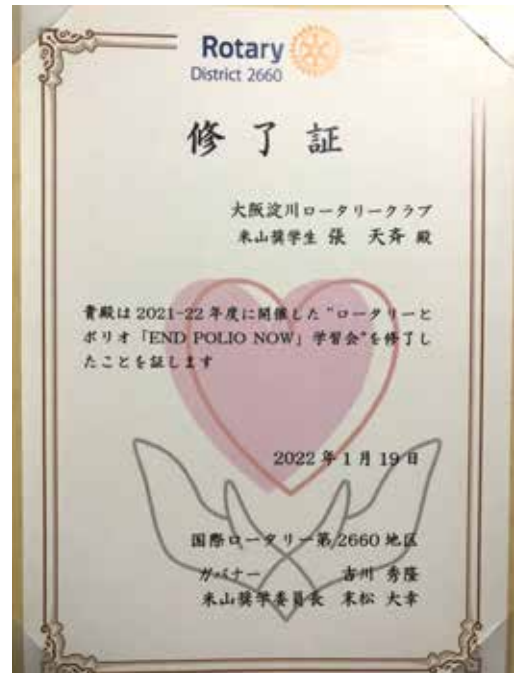 Rotary
District 2660
修了証
大阪淀川ロータリークラブ
米山奨学生 張 天斉 殿
貴殿は 2021-22 年度に開催した "ロータリーと
ポリオ「END POLIO NOW」学習会"を修了し
たことを証します
2022 年 1 月 19 日
国際ロータリー第 2660 地区
ガバナー 吉川 秀隆
米山奨学委員長 末松 大幸